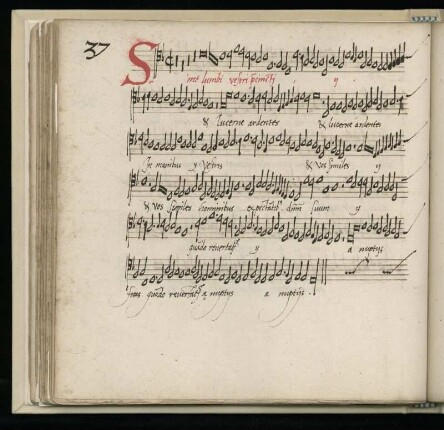 37
Sint lumbi vestri precincti y
& Lucerne ardentes & lucerne ardentes
In manibus y vestris & Vos similes y
& vos similes hominibus expectatibus dnm suum y
quando revertat y a nuptijs
quando revertat a nuptijs a nuptijs